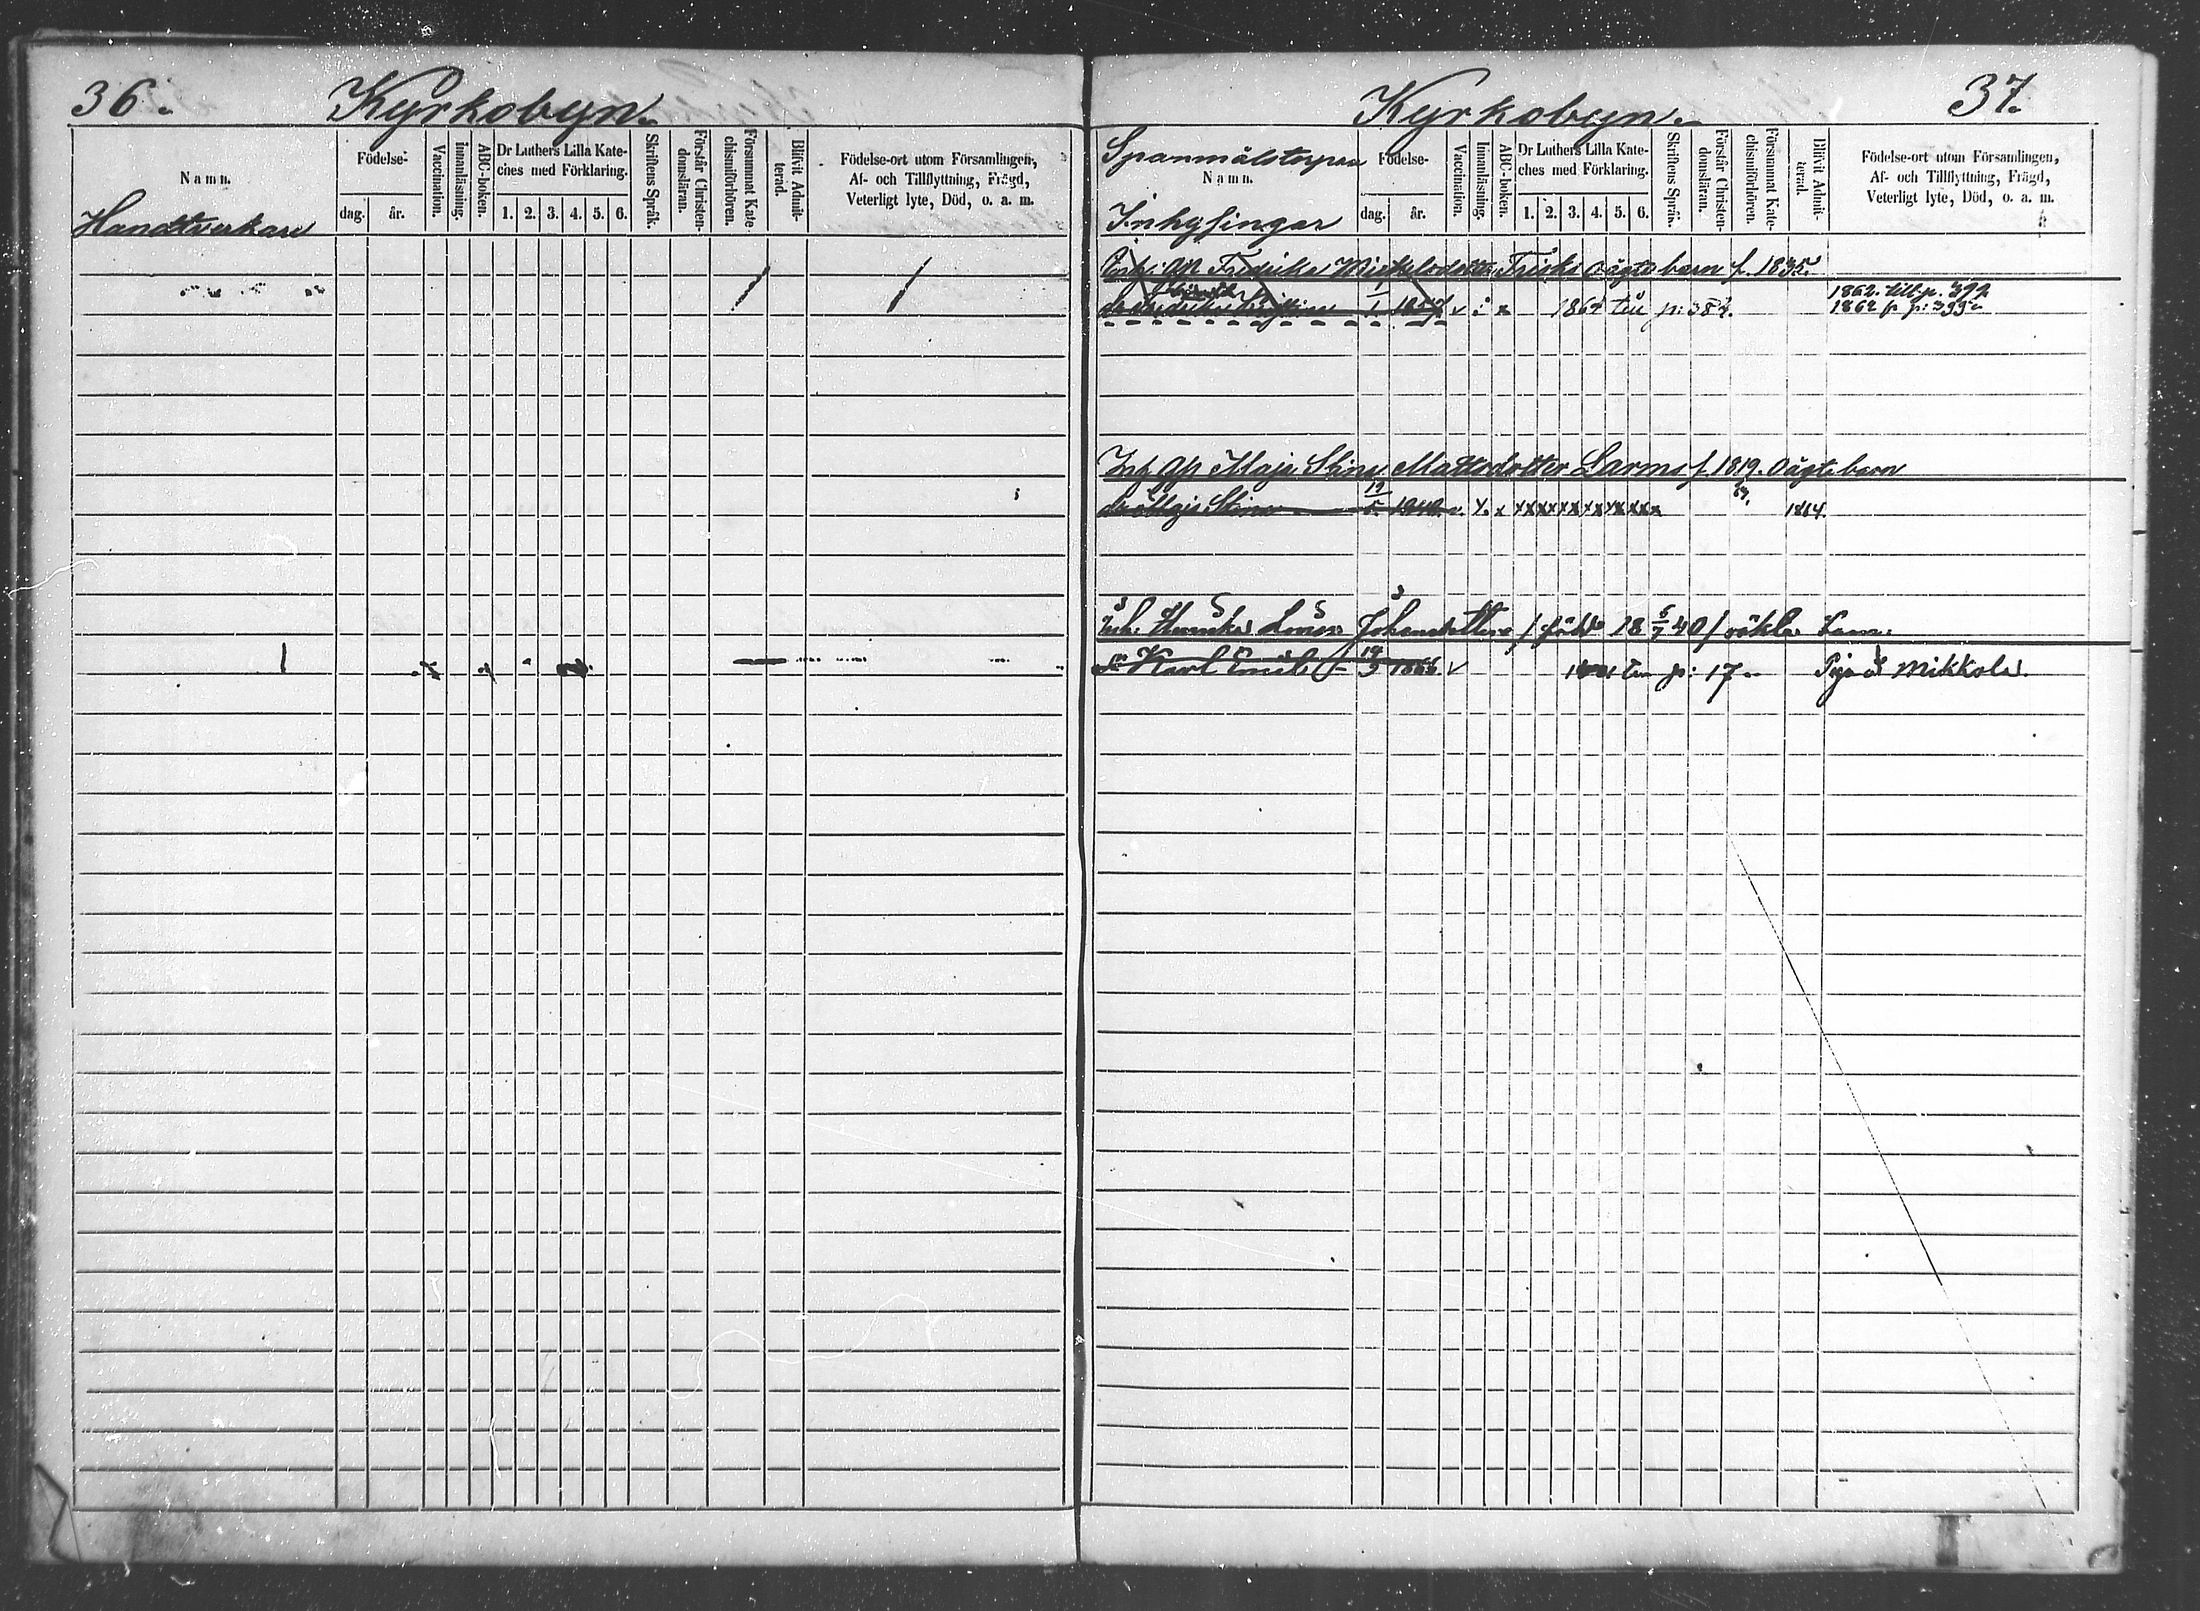 36.
Kyrkobyn.
Namn.
Födelse-
dag.
år.
Vaccination.
Innanläsning.
ABC-boken.
Dr Luthers Lilla Kate-
ches med Förklaring.
1. 2. 3. 4. 5. 6.
Skriftens Språk.
Förstår Christen-
domsläran.
Försummat Kate-
chismiförhören.
Blifvit Admit-
terad.
Födelse-ort utom Församlingen,
Af- och Tillflyttning, Frägd,
Veterligt lyte, Död, o. a. m.
Handtverkare
37.
Kyrkobyn.
Spanmålstorpare
Namn.
Inhysingar
Födelse-
dag.
år.
Vaccination.
Innanläsning.
ABC-boken.
Dr Luthers Lilla Kate-
ches med Förklaring.
1. 2. 3. 4. 5. 6.
Skriftens Språk.
Förstår Christen-
domsläran.
Försummat Kate-
chismiförhören.
Blifvit Admit-
terad.
Födelse-ort utom Församlingen,
Af- och Tillflyttning, Frägd,
Veterligt lyte, Död, o. a. m.
Fredrika Mickelsdotter Frisks oägta barn f. 1835.
1862. till p. 399
1/1 v x 1864 till p: 384. 1862 fr p: 399
Inh. Qp Maja Stina Mattsdotter Larms f. 1819. oägta barn
dr Maja Stina 19/5 1848. v. x x xxxxxxxxxxxxx 1864.
Inh. Henrika Lovisa Johansdotter / född 18 5/7 40 / oäkta
sn Karl Emil 19/3 1866. v till p: 17 Piga å Mikkola.